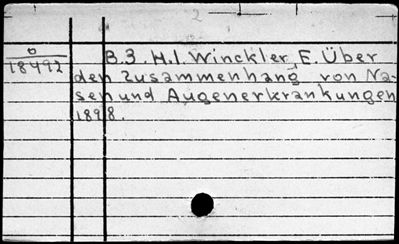 2
o
18492
B.3. H.1. Winckler, E. Über
den Zusammenhang von Na-
sen und Augenerkrankungen
1898.